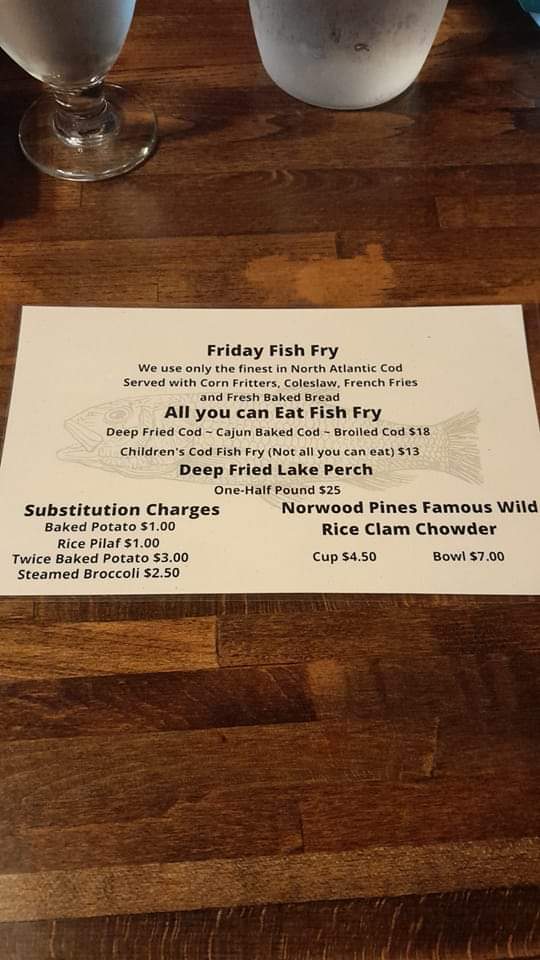 Friday Fish Fry
We use only the finest in North Atlantic Cod
Served with Corn Fritters, Coleslaw, French Fries
and Fresh Baked Bread
All you can Eat Fish Fry
Deep Fried Cod ~ Cajun Baked Cod ~ Broiled Cod $18
Children's Cod Fish Fry (Not all you can eat) $13
Deep Fried Lake Perch
One-Half Pound $25
Substitution Charges
Baked Potato $1.00
Rice Pilaf $1.00
Twice Baked Potato $3.00
Steamed Broccoli $2.50
Norwood Pines Famous Wild
Rice Clam Chowder
Cup $4.50 Bowl $7.00